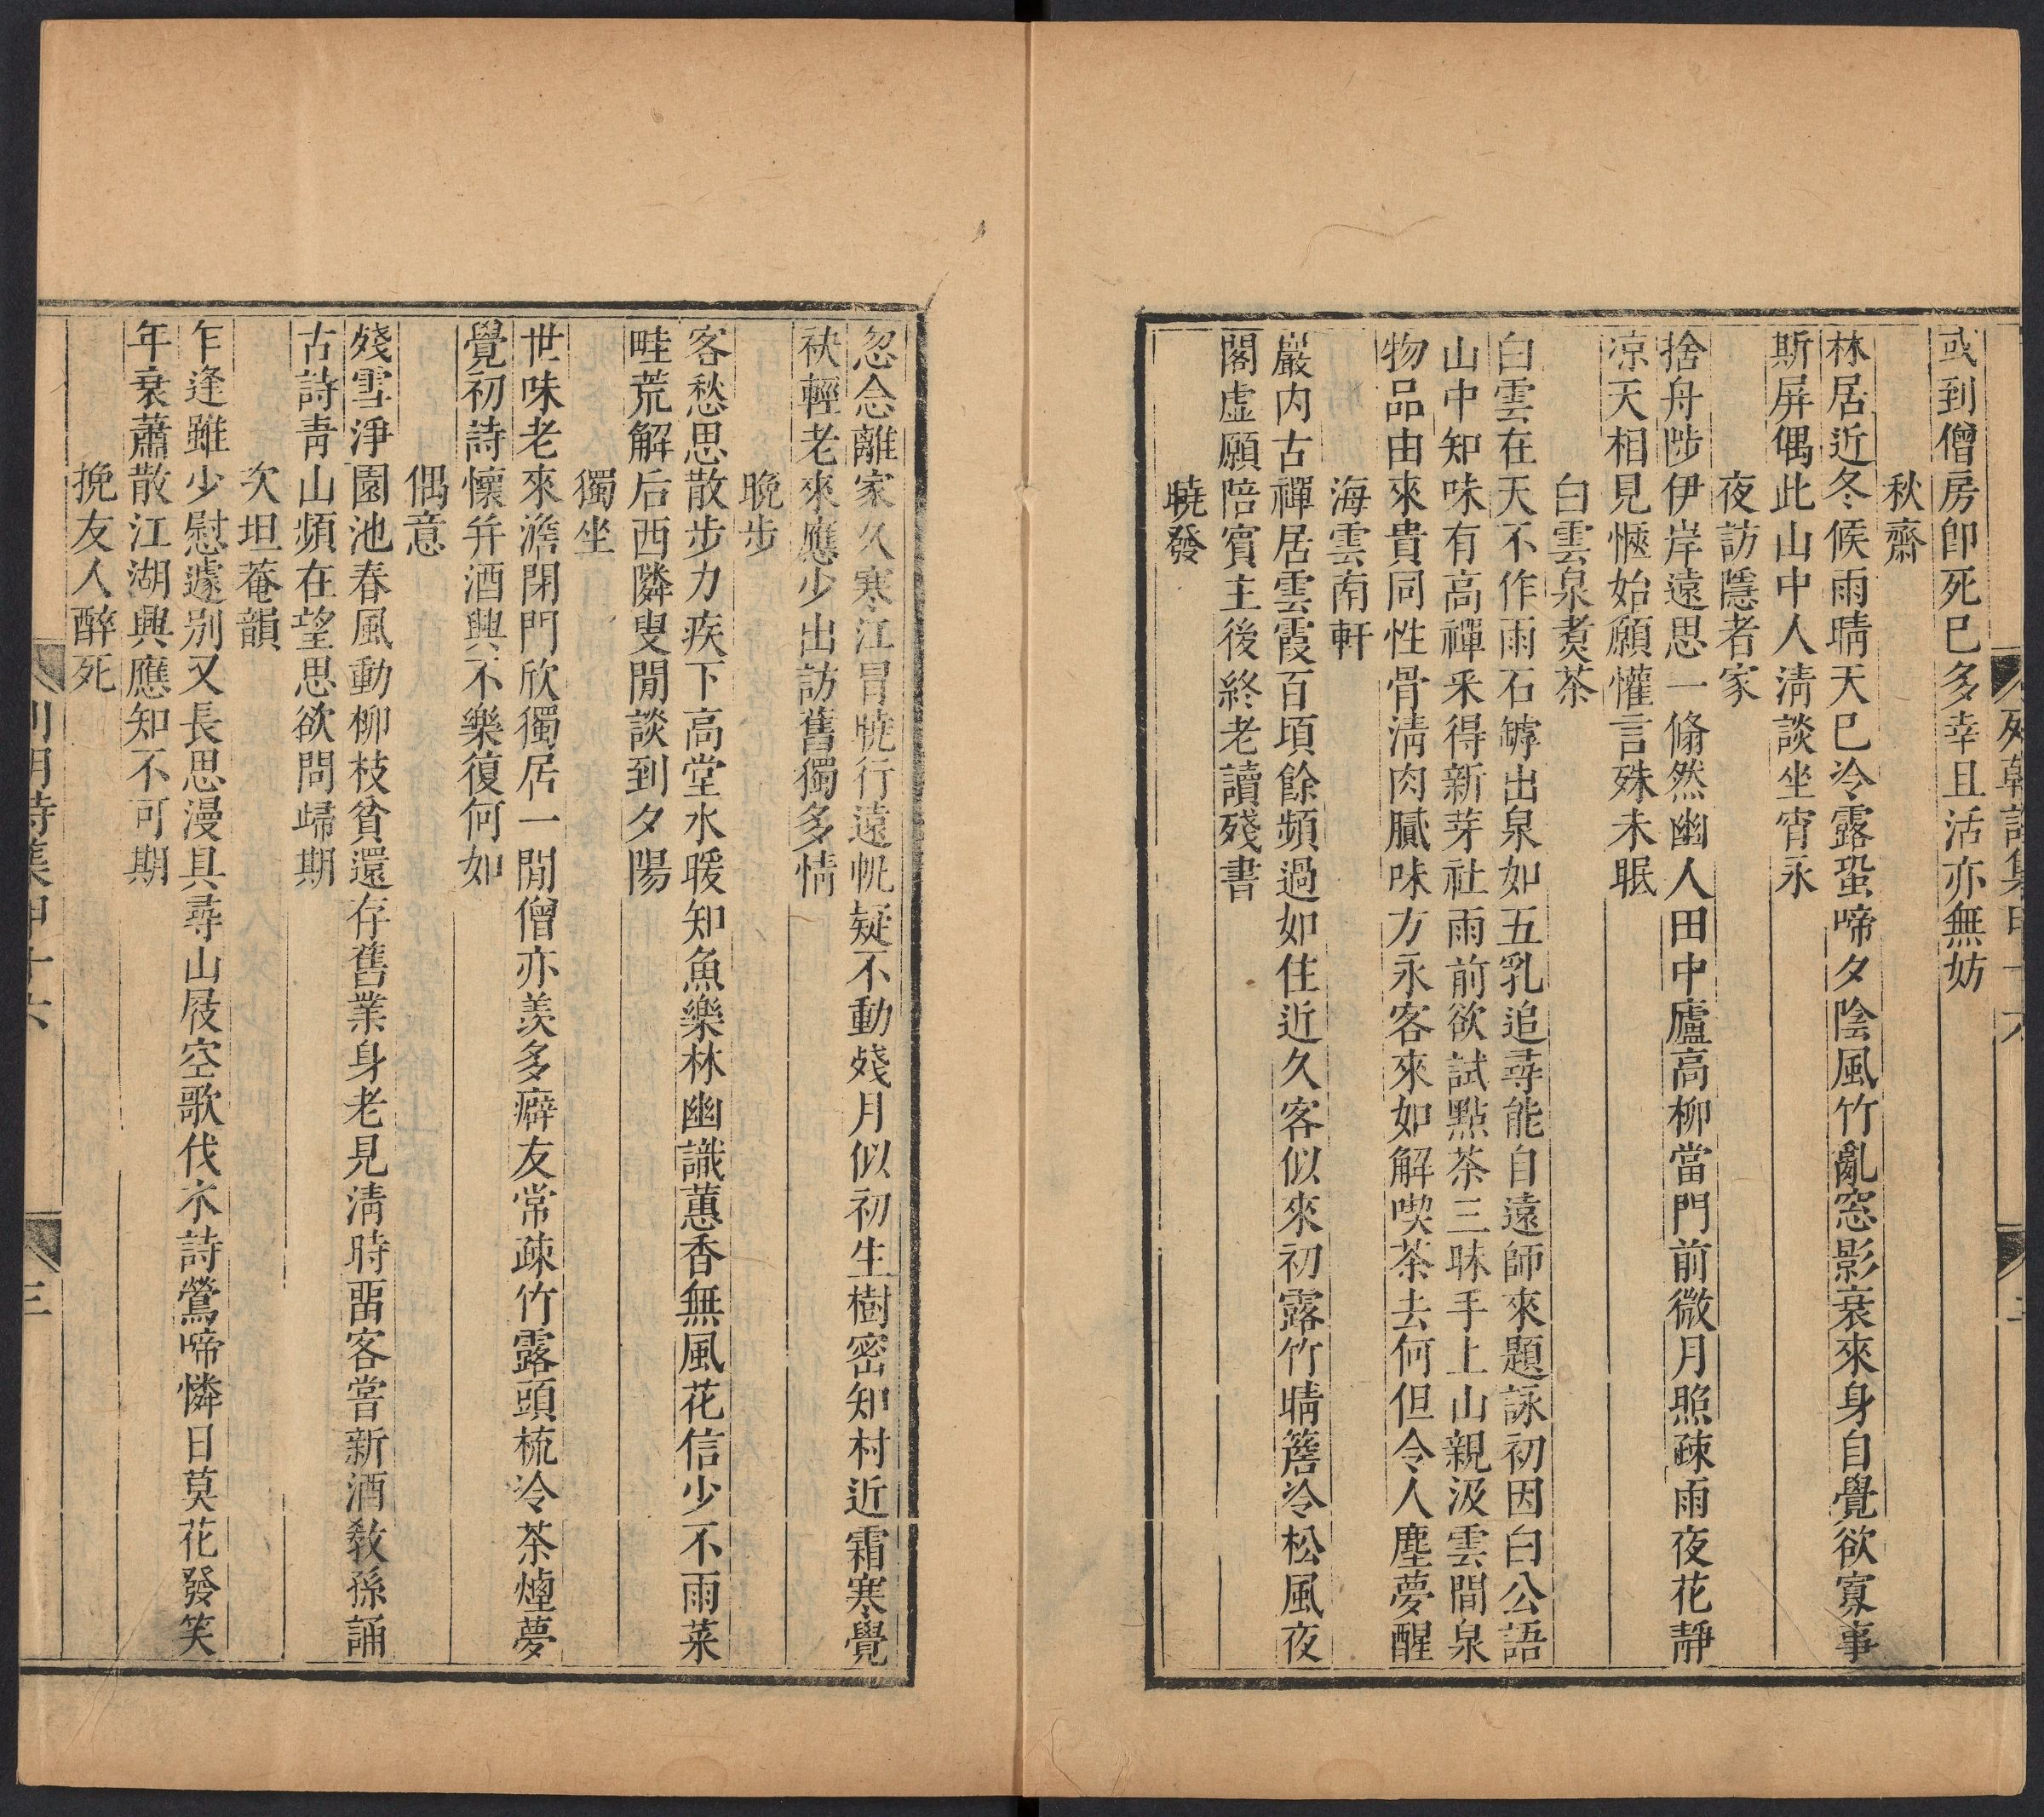 或到僧房卽死已多幸且活亦無妨
秋齋
林居近冬候雨晴天已冷露蛩啼夕陰風竹亂窓影衰來身自覺欲寡事
斯屏偶此山中人淸談坐宵永
夜訪隱者家
捨舟陟伊岸遠思一翛然幽人田中廬高柳當門前微月照疎雨夜花靜
凉天相見愜始願懽言殊未眠
白雲泉煑茶
白雲在天不作雨石罅出泉如五乳追尋能自遠師來題詠初因白公語
山中知味有高禪采得新芽社雨前欲試點茶三昧手上山親汲雲間泉
物品由來貴同性骨淸肉膩味方永客來如解喫茶去何但令人塵夢醒
海雲南軒
巖内古禪居雲霞百頃餘頻過如住近久客似來初露竹晴簷冷松風夜
閣虛願陪賓主後終老讀殘書
曉發
忽念離家久寒江冒曉行遠帆疑不動殘月似初生樹密知村近霜寒覺
袂輕老來應少出訪舊獨多情
晩步
客愁思散步力疾下高堂水暖知魚樂林幽識蕙香無風花信少不雨菜
畦荒解后西隣叟閒談到夕陽
獨坐
世味老來澹閉門欣獨居一閒僧亦羨多癖友常疎竹露頭梳冷茶煙夢
覺初詩懷幷酒興不樂復何如
偶意
殘雪淨園池春風動柳枝貧還存舊業身老見淸時畱客嘗新酒敎孫誦
古詩靑山頻在望思欲問歸期
次坦菴韻
乍逢雖少慰遽别又長思漫具尋山屐空歌伐木詩鶯啼憐日莫花發笑
年衰蕭散江湖興應知不可期
挽友人醉死
列朝詩集甲十六
三